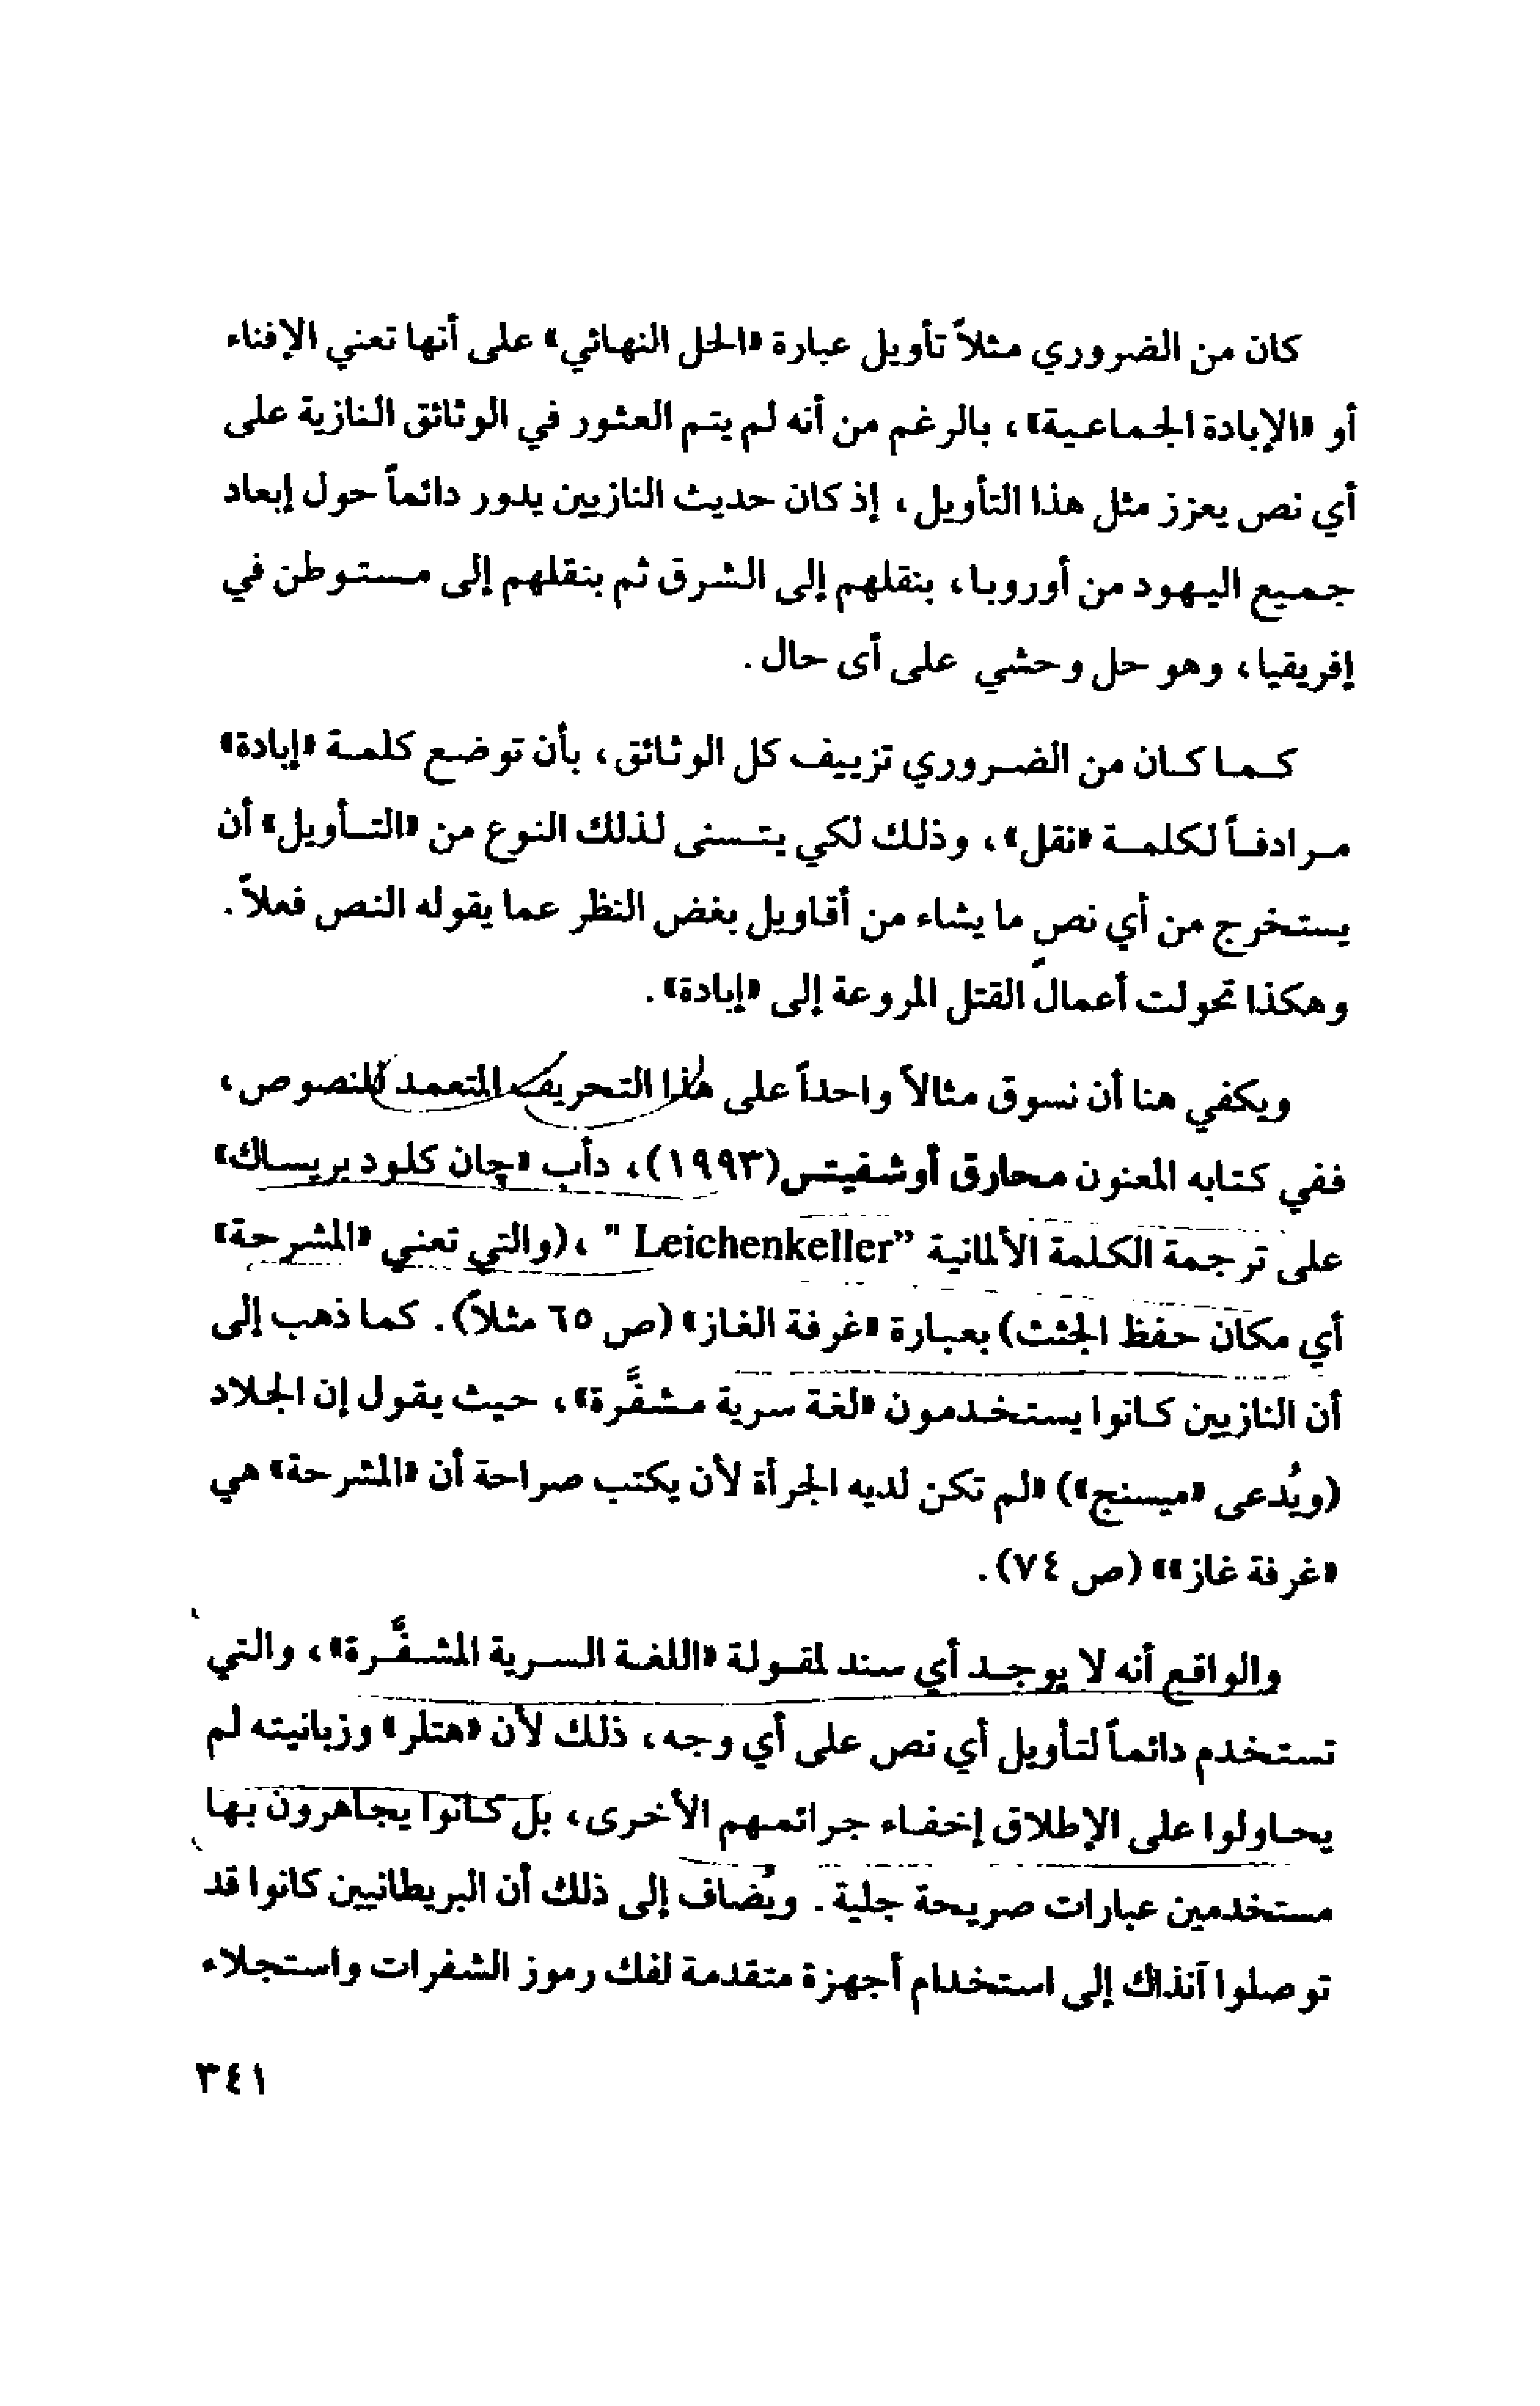 كان من الضروري مثلاً تأويل عبارة «الحل النهائي» على أنها تعني الإفناء
أو «الإبادة الجماعية»، بالرغم من أنه لم يتم العثور في الوثائق النازية على
أي نص يعزز مثل هذا التأويل، إذ كان حديث النازيين يدور دائماً حول إبعاد
جميع اليهود من أوروبا، بنقلهم إلى الشرق ثم بنقلهم إلى مستوطن في
إفريقيا، وهو حل وحشي على أى حال.
كما كان من الضروري تزييف كل الوثائق، بأن توضع كلمة «إبادة»
مرادفاً لكلمة «نقل»، وذلك لكي يتسنى لذلك النوع من «التأويل» أن
يستخرج من أي نص ما يشاء من أقاويل بغض النظر عما يقوله النص فعلاً.
وهكذا تحولت أعمال القتل المروعة إلى «إبادة».
ويكفي هنا أن نسوق مثالاً واحداً على هذا التحريف المتعمد للنصوص،
ففي كتابه المعنون محارق أوشفيتس(١٩٩٣)، دأب «چان كلود بريساك»
على ترجمة الكلمة الألمانية ”Leichenkeller "، (والتي تعني «المشرحة»
أي مكان حفظ الجثث) بعبارة «غرفة الغاز» (ص ٦٥ مثلاً). كما ذهب إلى
أن النازيين كانوا يستخدمون «لغة سرية مشفَّرة»، حيث يقول إن الجلاد
(ويُدعى «ميسنج») «لم تكن لديه الجرأة لأن يكتب صراحة أن «المشرحة» هي
«غرفة غاز»» (ص ٧٤).
والواقع أنه لا يوجد أي سند لمقولة «اللغة السرية المشفَّرة»، والتي
تستخدم دائماً لتأويل أي نص على أي وجه، ذلك لأن «هتلر» وزبانيته لم
يحاولوا على الإطلاق إخفاء جرائمهم الأخرى، بل كانوا يجاهرون بها
مستخدمين عبارات صريحة جلية. ويُضاف إلى ذلك أن البريطانيين كانوا قد
توصلوا آنذاك إلى استخدام أجهزة متقدمة لفك رموز الشفرات واستجلاء
٣٤١